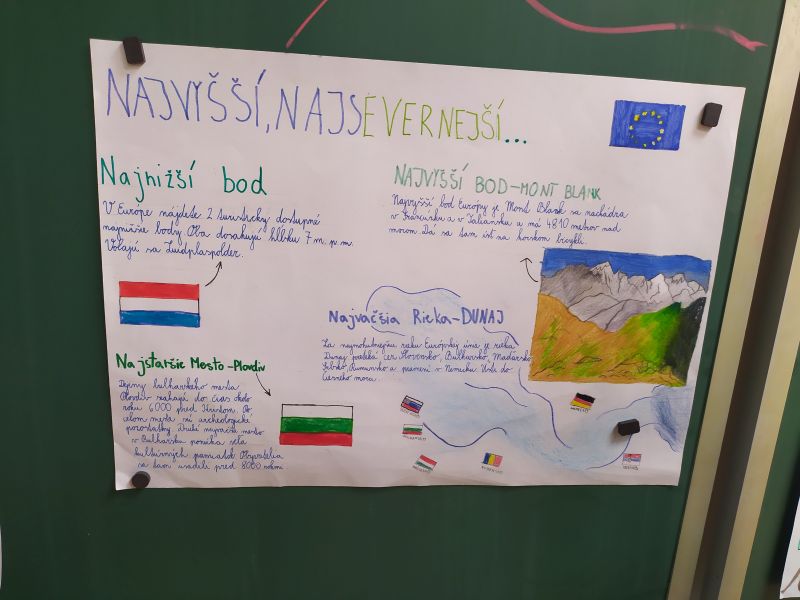 NAJVYŠŠÍ, NAJSEVERNEJŠÍ...
Najnižší bod
V Európe nájdete 2 turisticky dostupné
najnižšie body. Oba dosahujú hĺbku 7 m. p. m.
Volajú sa Zuidplaspolder.
NAJVYŠŠÍ BOD-MONT BLANK
Najvyšší bod Európy je Mont Blank sa nachádza
v Francúzku a v Taliansku a má 4810 metrov nad
morom. Dá sa tam ísť na horskom bicykli.
Najväčšia Rieka-DUNAJ
Za najmohutnejšiu rieku Európskej únie je rieka
Dunaj preteká cez Slovensko, Bulharsko, Maďarsko
Srbsko, Rumunsko a pramení v Nemecku Ústi do
Čierneho mora.
Najstaršie Mesto-Plovdiv
Dejiny bulharského mesta
Plovdiv siahajú do čias okolo
roku 6000 pred Kristom. Po
celom meste sú archeologické
pozostatky. Druhé najväčšie mesto
v Bulharsku ponúka veľa
kultúrnych pamiatok Obyvatelia
sa tam usadili pred 8000 rokmi